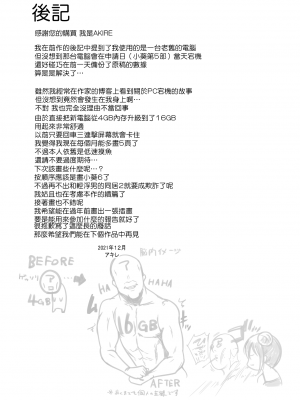 後記
感謝您的購買 我是AKIRE
我在前作的後記中提到了我使用的是一台老舊的電腦
但沒想到那台電腦會在申請日（小葵第5部）當天宕機
還好碰巧在前一天備份了原稿的數據
算是是解決了⋯
雖然我經常在作家的博客上看到關於PC宕機的故事
但沒想到竟然會發生在我身上啊⋯
不對 我也完全沒理由不當回事
由於直接把新電腦從4GB內存升級到了16GB
用起來非常舒適
以前只要回車三連擊屏幕就會卡住
我覺得我現在在每個月能多畫5頁了
不過本人依舊是低速摸魚
還請不要過度期待⋯
下次該畫些什麼呢⋯？
按順序應該是畫小葵6了
不過再不出和輕浮男的同居2就要成欺詐了呢
我姑且也在考慮本作的續篇了
接著畫也不錯呢
我希望能在過年前畫出一張插畫
要是能用來參加什麼的報告就好了
很抱歉寫了這麼長的廢話
那麼希望我們能在下個作品中再見
2021年12月
アキレ
BEFORE
4GB
HAHA
HAHA
16GB
AFTER